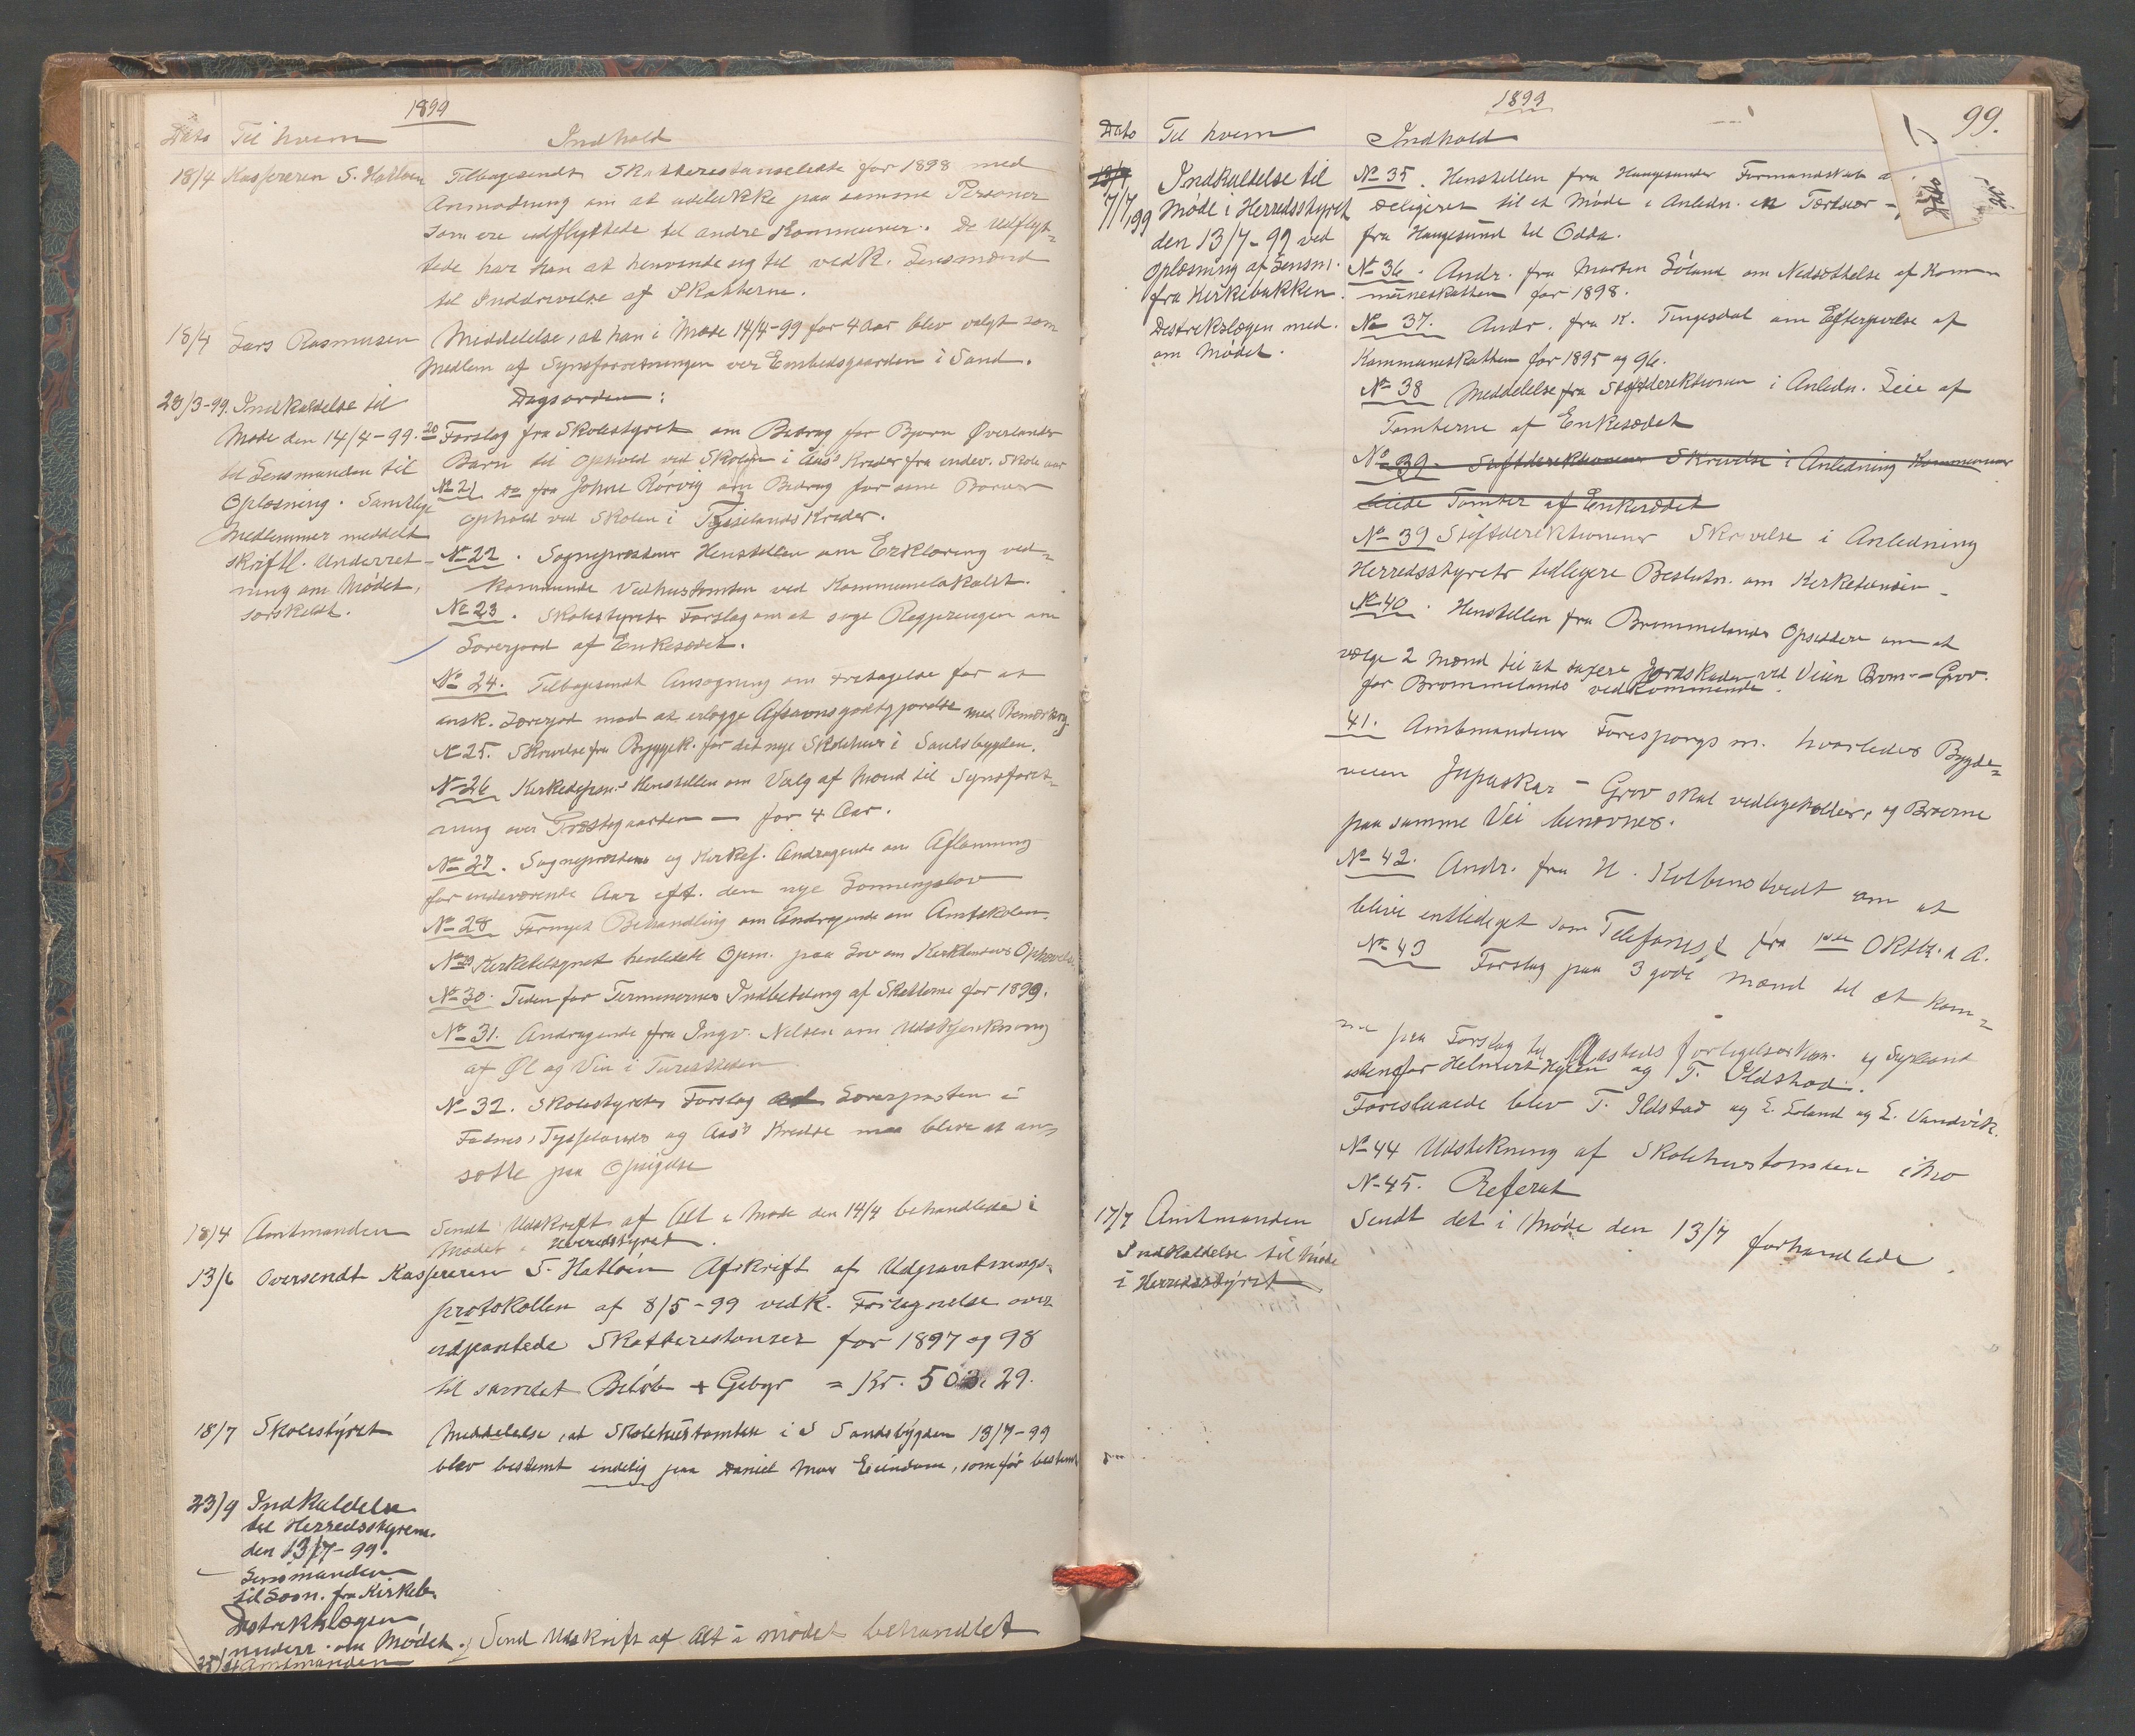 1899
Dato Til hvem Indhold
18/4 Kassereren S. Hatløen Tilbagesendt Skatterestanseliste for 1898 med
Anmodning om at udelukke paa samme Personer
som ere udflyttede til andre Kommuner. De Udflyt=
tede har han at henvende sig til vedk. Lensmænd
til Inddrivelse af Skatterne.
18/4 Lars Rasmusen Meddelelse, at han i Møde 14/4-99 for 4 Aar blev valgt som
Medlem af Synsforretningen over Embedsgaarden i Sand.
28/3-99. Indkaldelse til
Møde den 14/4-99.
til Lensmanden til
Oplæsning. Samtlige
Medlemmer meddelt
skriftl. Underret-
ning om Mødet,
særskildt.
Dagsorden:
20 Forslag fra Skolestyret om Bidrag for Bjørn Øverlands
Barn til Ophold ved Skolen i Aas's Kreds fra indev. Skoleaar
No 21 Do fra Johne Rørvig om Bidrag for sine Børns
Ophold ved Skolen i Tysselands Kreds.
No 22. Sogneprestens Henstillen om Erklæring ved=
kommende Vedhustomten ved Kommunelokalet.
No 23. Skolestyrets Forslag om at søge Regjeringen om
Lærerjord af Enkesædet.
No 24. Tilbagesendt Ansøgning om
ansk. Lærerjord mod at erlægge Afsavnsgodtgjørelse med Bemærkng
No 25. Skrivelse fra Byggek. for det nye Skolehus i Sandsbygden.
No 26 Kirkedepm.s Henstillen om Valg af Mænd til Synsforret-
ning over Præstegaarden — for 4 Aar.
No 27. Sogneprestens og Kirkes. Andragende om Aflønning
for indeværende Aar eft. den nye Lønningslov
No 28 Fornyet Behandling om Andragende om Amtskolen.
No 29 Kirketilsynet Opm. paa Lov om Kirketiendens Ophævelse.
No 30. Tiden for Terminernes Indbetaling af Skatterne for 1899.
No 31. Andragende fra Ingv. Nilsen om Udskjænkning
af Øl og Vin i Turisttiden
No 32. Skolestyrets Forslag Lærerposten i
Fadnes, Tysselands og Aas's Kredse maa blive at an=
sætte paa Opsigelse
18/4 Amtmanden Sendt Udskrift af Alt i Møde den 14/4 behandlede i
Mødet i Herredsstyret.
13/6 Oversendt Kassereren S. Hatløen Afskrift af Udpantnings-
protokollen af 8/5-99 vedk. Fortegnelse over
udpantede Skatterestanser for 1897 og 98
til samlet Beløb + Gebyr = Kr. 503.29.
18/7 Skolestyret Meddelelse, at Skolehustomten i S Sandsbygden 13/7-99
blev bestemt endelig paa Daniel Moes Eiendom, som før bestemt
23/9 Indkaldelse
til Herredsstyrem.
den 13/7-99.
Lensmanden
til Læsn. fra Kirkeb.
Distriktslægen
underr. om Mødet.
25/9 Amtmanden Send Udskrift af Alt i mødet behandlet
1899
99.
Dato Til hvem Indhold
7/7 99 Indkaldelse til
Møde i Herredsstyret
den 13/7-99 ved
Oplæsning af Lensm.
fra Kirkebakken.
Distrikslægen med.
om Mødet.
No 35. Henstillen fra Haugesunds Formandskab
Deligeret til et Møde i Anledn. en Tærtvær-
fra Haugesund til Odda.
No 36. Andr. fra Morten Løland om Nedsættelse af Kom
muneskatten for 1898.
No 37. Andr. fra K. Tingesdal om Eftergivelse af
Kommuneskatten for 1895 og 96.
No 38 Meddelelse fra Stiftdirektionen i Anledn. Leie af
Tomterne af Enkesædet
No 39. Stiftdirektionens Skrivelse i Anledning Kommunens
leiede Tomter af Enkesædet
No 39 Stiftdirektionens Skrivelse i Anledning
Herredsstyrets tidligere Beslutn. om Kirketienden
No 40. Henstillen fra Brommelands Opsiddere om at
vælge 2 Mænd til at taxere Jordskaden ved Veien Brom-Grov.
for Brommelands vedkommende.
41. Amtmandens Forespørgs m. hvorledes Bygde=
veien - Grov skal vedligeholdes, og Broerne
paa samme Vei benævnes.
No 42. Andr. fra H. Kolbenstvedt om at
blive entlediget som Telefonist fra 1ste Oktbr. d. A.
No 43 Forslag paa 3 gode Mænd til at kom=
me paa Forslag til forligelseskom.
istenfor Helmert Hylen og T. Ildstad.
Foreslaaede blev T. Ildstad og E. Løland og L. Vandvik.
No 44 Udstikning af Skolehustomten i Mo
No 45. Referat
17/7 Amtmanden Sendt det i Møde den 13/7 forhandlede.
Indkaldelse til Møde
i Herredsstyret